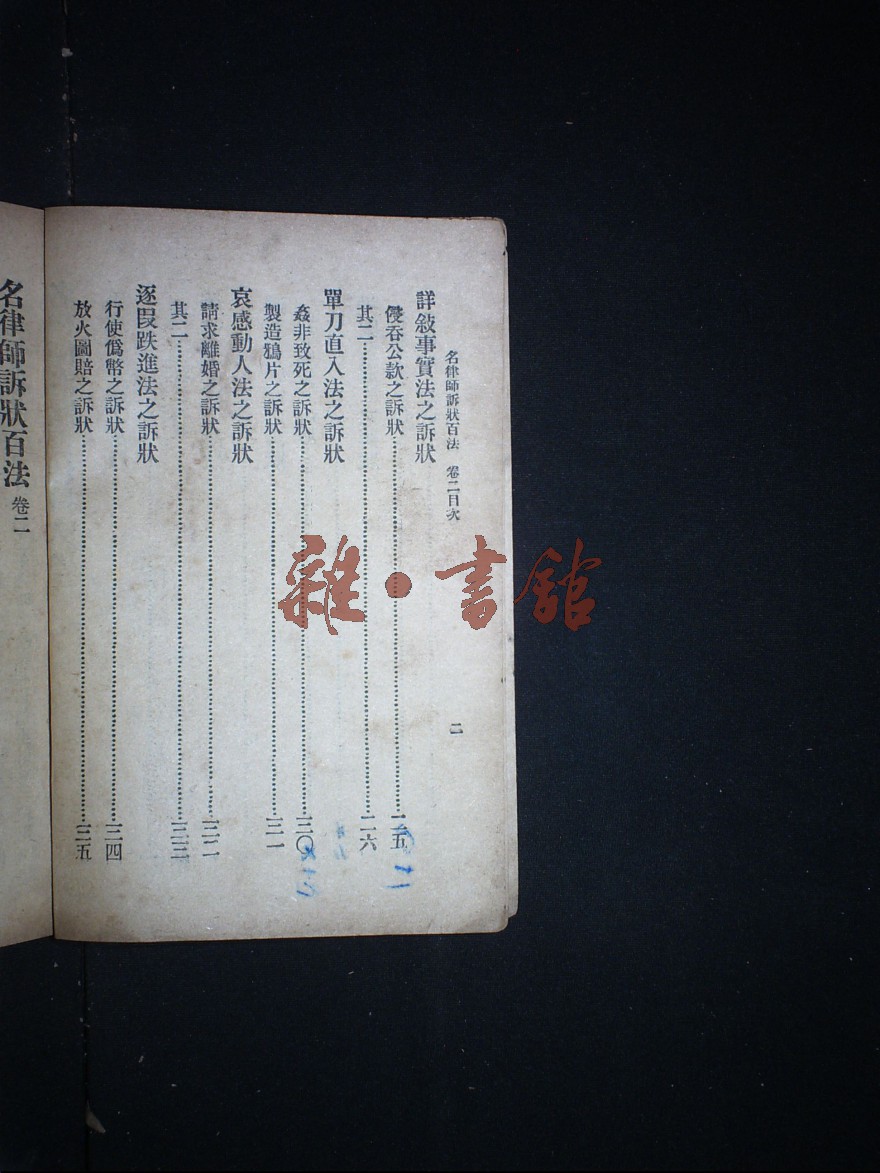 名律師訴狀百法　卷二目次　二
詳敍事實法之訴狀
侵吞公款之訴狀……二五
其二……二六
單刀直入法之訴狀
姦非致死之訴狀……三〇
製造鴉片之訴狀……三一
哀感動人法之訴狀
請求離婚之訴狀……三二
其二……三三
逐段跌進法之訴狀
行使僞幣之訴狀……三四
放火圖賠之訴狀……三五
名律師訴狀百法　卷二
雜·書館